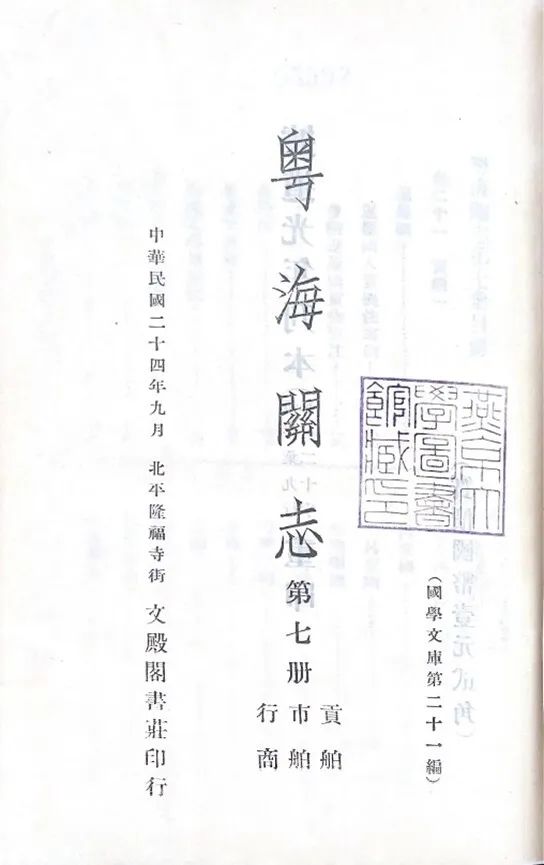 燕京大
學圖書
館藏印
（國學文庫第二十一編）
粵海關志 第七册
貢舶
市舶
行商
中華民國二十四年九月 北平隆福寺街 文殿閣書莊印行